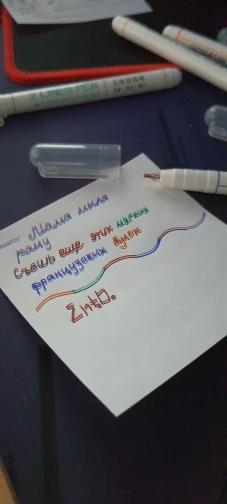 Мама мыла
раму
Съешь еще этих мягких
французских булок